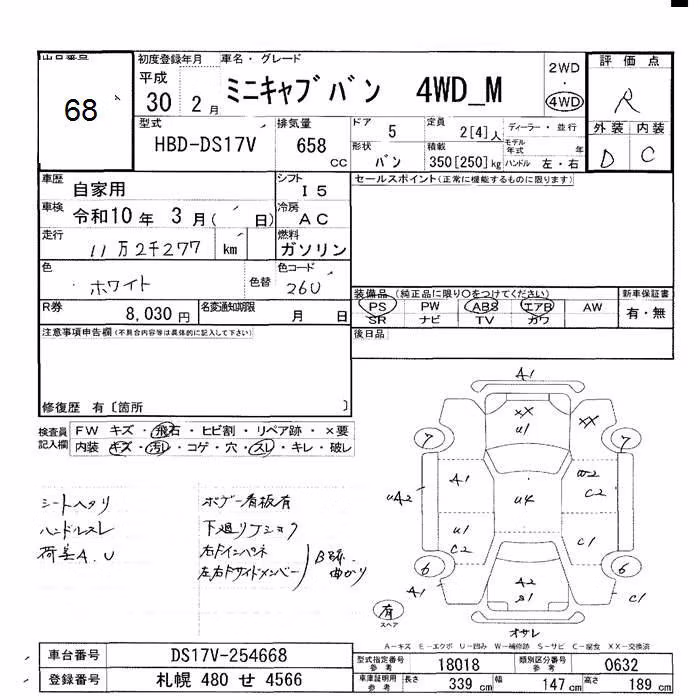 出品番号
68
初度登録年月
平成
30 2 月
車名・グレード
ミニキャブバン 4WD_M
2WD
・
4WD
評価点
R
外装 内装
D C
型式
HBD-DS17V
排気量
658
cc
ドア
5
定員
2[4]人
ディーラー・並行
形状
バン
積載
350[250]kg
モデル年式 年
ハンドル 左・右
車歴
自家用
シフト
I5
車検
令和10年 3月( 日)
冷房
AC
走行
11万2千277 km
燃料
ガソリン
色
ホワイト
色替
色コード
26U
R券
8,030円
名変通知期限
月 日
セールスポイント(正常に機能するものに限ります)
装備品(純正品に限り○をつけてください)
PS PW ABS エアB AW
SR ナビ TV カワ
新車保証書
有・無
後日品
注意事項申告欄(不具合内容等は具体的に記入して下さい)
修復歴 有〔箇所 〕
検査員
記入欄
FW キズ・飛石・ヒビ割・リペア跡・×要
内装 キズ・汚レ・コゲ・穴・スレ・キレ・破レ
シートヘタリ
ハンドルスレ
荷差A.U
ボデー看板有
下廻り
右
左右Fサイドメンバー
B跡
曲がり
A1
XX
U1
XX
7
7
A1
W2
C2
UA2
U4
U1
C2
C1
6
6
A1
A2
S1
C1
有
スペア
オサレ
A-キズ E-エクボ U-凹み W-補修跡 S-サビ C-腐食 XX-交換済
車台番号
DS17V-254668
登録番号
札幌 480 せ 4566
型式指定番号
参考
18018
類別区分番号
参考
0632
車庫証明用
参考
長さ
339 cm
幅
147 cm
高さ
189 cm